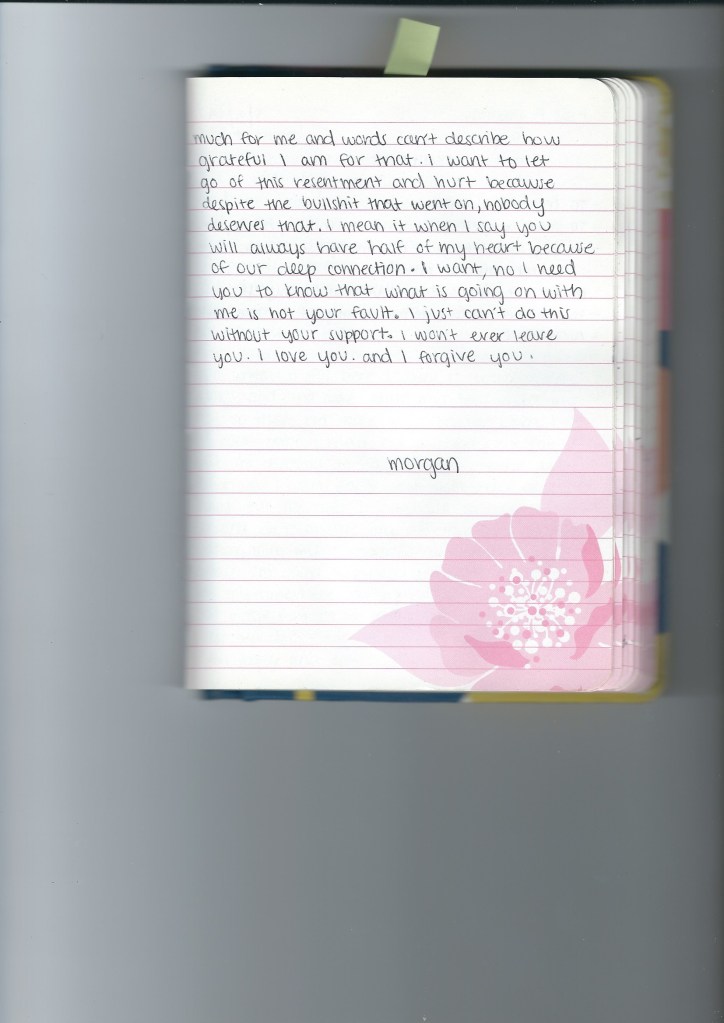 much for me and words can't describe how
grateful I am for that. i want to let
go of this resentment and hurt because
despite the bullshit that went on, nobody
deserves that. I mean it when I say you
will always have half of my heart because
of our deep connection. I want, no I need
you to know that what is going on with
me is not your fault. I just can't do this
without your support. I won't ever leave
you. I love you. and I forgive you.
morgan